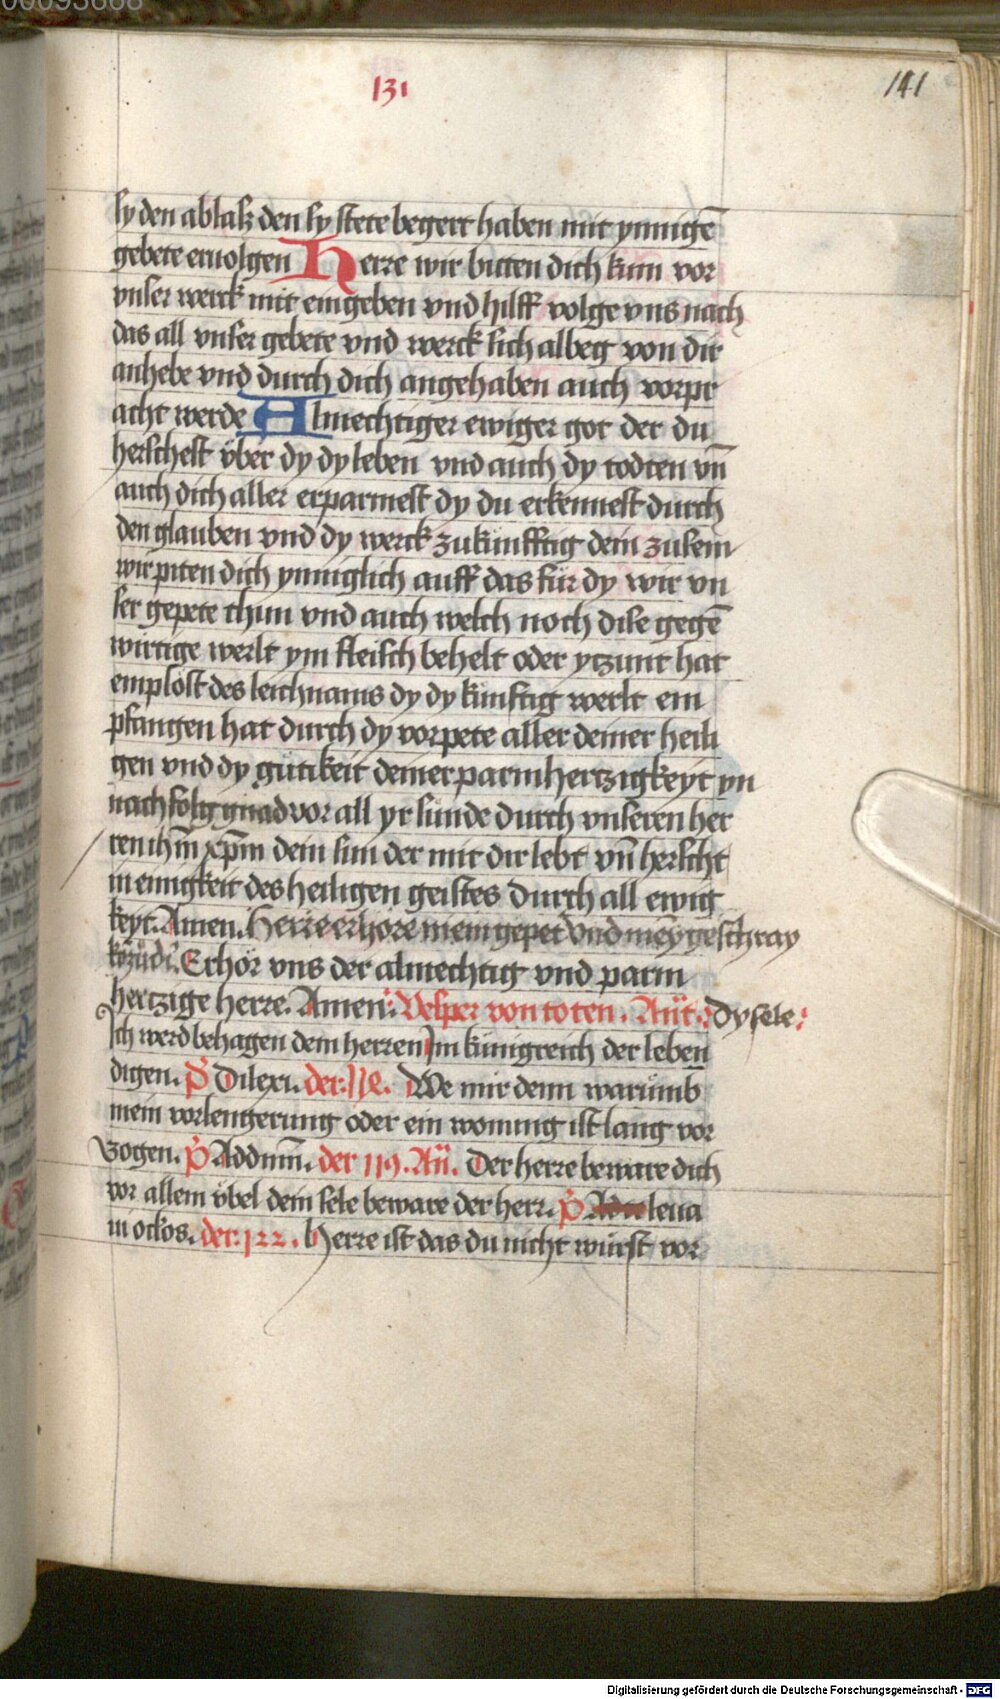 00093668
131
141
sy den ablasz den sy stete begert haben mit ynnigē
gebete eruolgen Herre wir bitten dich kum vor
vnser werck mit eingeben vnd hilff volge vns nach
das all vnser gebete vnd werck sich albeg von dir
anhebe vnd durch dich angehaben auch vorpr
acht werde Almechtiger ewiger got der du
herschest vber dy dy leben vnd auch dy todten vn̄
auch dich aller erparmest dy du erkennest durch
den glauben vnd dy werck zukunfftig dein zu sein
wir piten dich ynniglich auff das für dy wir vn
ser gepete thun vnd auch welch noch dise gegē
wirtige werlt ym fleisch behelt oder yczunt hat
emplöst des leichnams dy dy künftig werlt em
pfangen hat durch dy vorpete aller deiner heili
gen vnd dy gütikeit deiner parmherczigkeyt yn
nachfolg gnad vor all yr sunde durch vnseren her
ren ihm̄ xp̄m dein sun der mit dir lebt vn̄ herscht
in einigkeit des heiligen geistes durch all ewig
keyt. Amen. Herre erhore mein gepet vnd mēy geschray
kō zu dir. Erhör vns der almechtig vnd parm
hertzige herre. Amen. Vesper von toten. Ant. Dy sele:
Ich werd behagen dem herren Im künigreich der leben
digen. ps Dilexi. der: We mir denn warümb
mein vorlengerung oder ein wonung ist lang vor
zogen. ps Ad dnm̄. der 119. An̄. Der herre beware dich
vor allem vbel dein sele beware der herr. ps leua
ui oc̄los. der: 122. Herre ist das du nicht würst vor
Digitalisierung gefördert durch die Deutsche Forschungsgemeinschaft - DFG